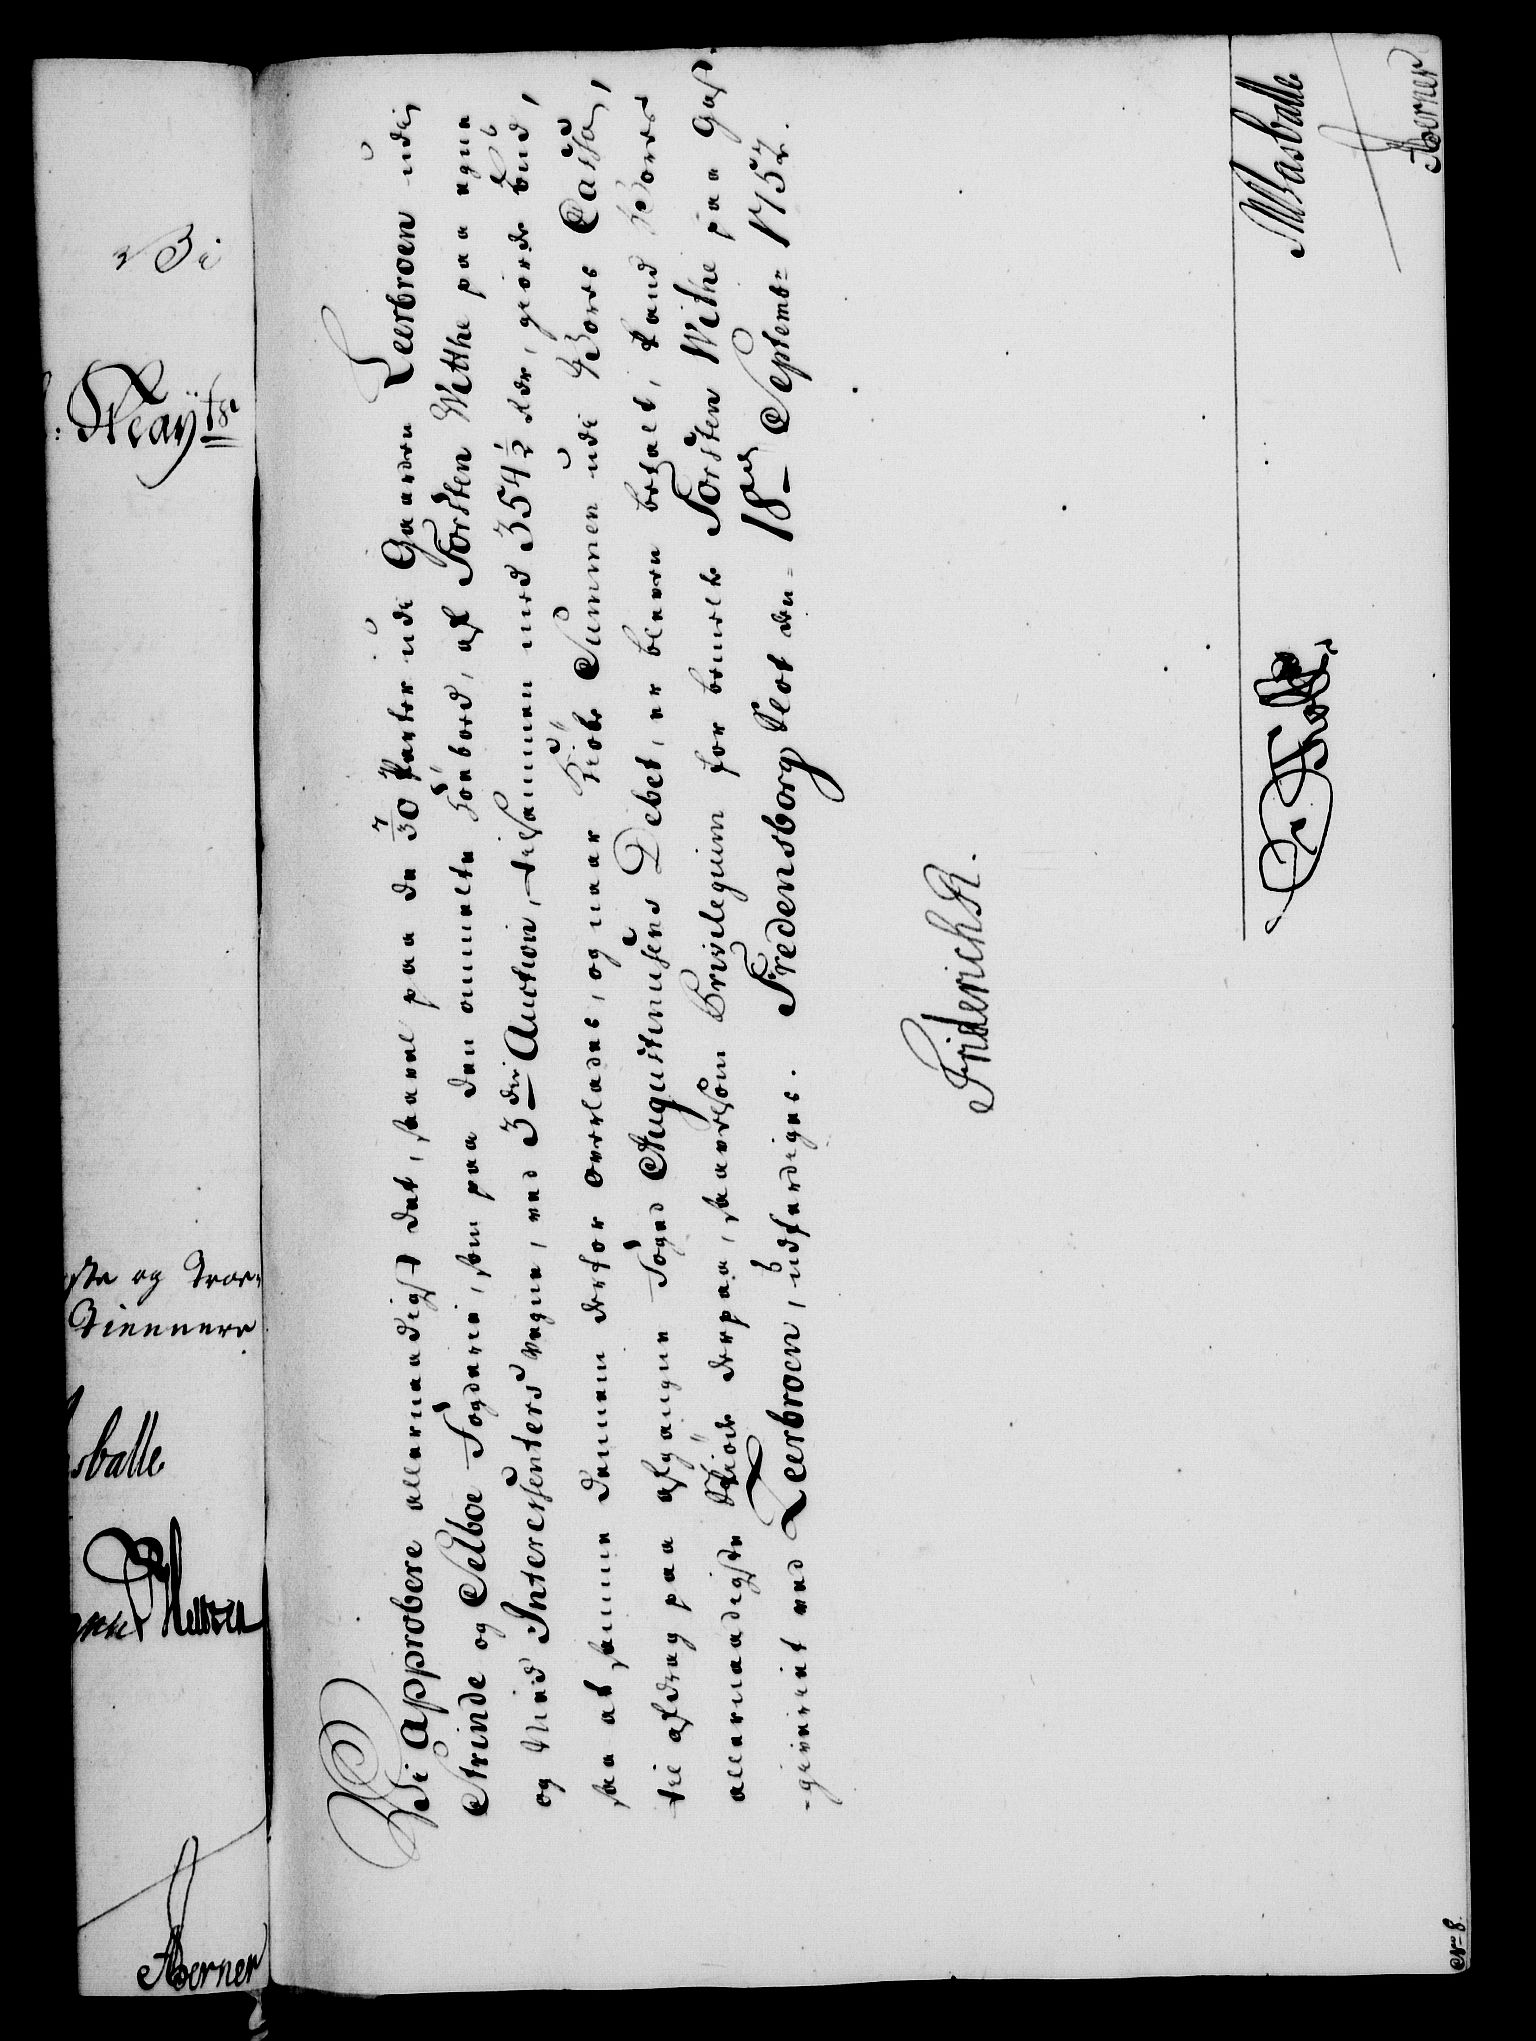 Vi Approbere allernaadigst det, saavel paa de 7/30 Parter udi Gaarden Leerbroen udi
Strinde og Selboe Fogderie, som paa den anmeldte Høebord, af Torsten Witthe paa egne
og Med Interessenters vegne, ved 3die Auction, tilsammen med 354 1/2 rdr, giorde Bud,
saa at samme dennem derfor overlades, og naar Kiøbe Summen udi Vores Cassa,
til afdrag paa afgangne Foged Augustinusens Debet, er bleven betalt, kand Vores
allernaadigste Skiøde derpaa, saavelsom Privilegium for bemelte Torsten Withe paa Gast
-giveriet ved Leerbroen, udfærdiges. Fredensborg Slot den 18de Septembr 1752.
Friderich R.
Wasballe
Aerner
No 8.
Kay
og Troe
Tiennere
sballe
Aerner